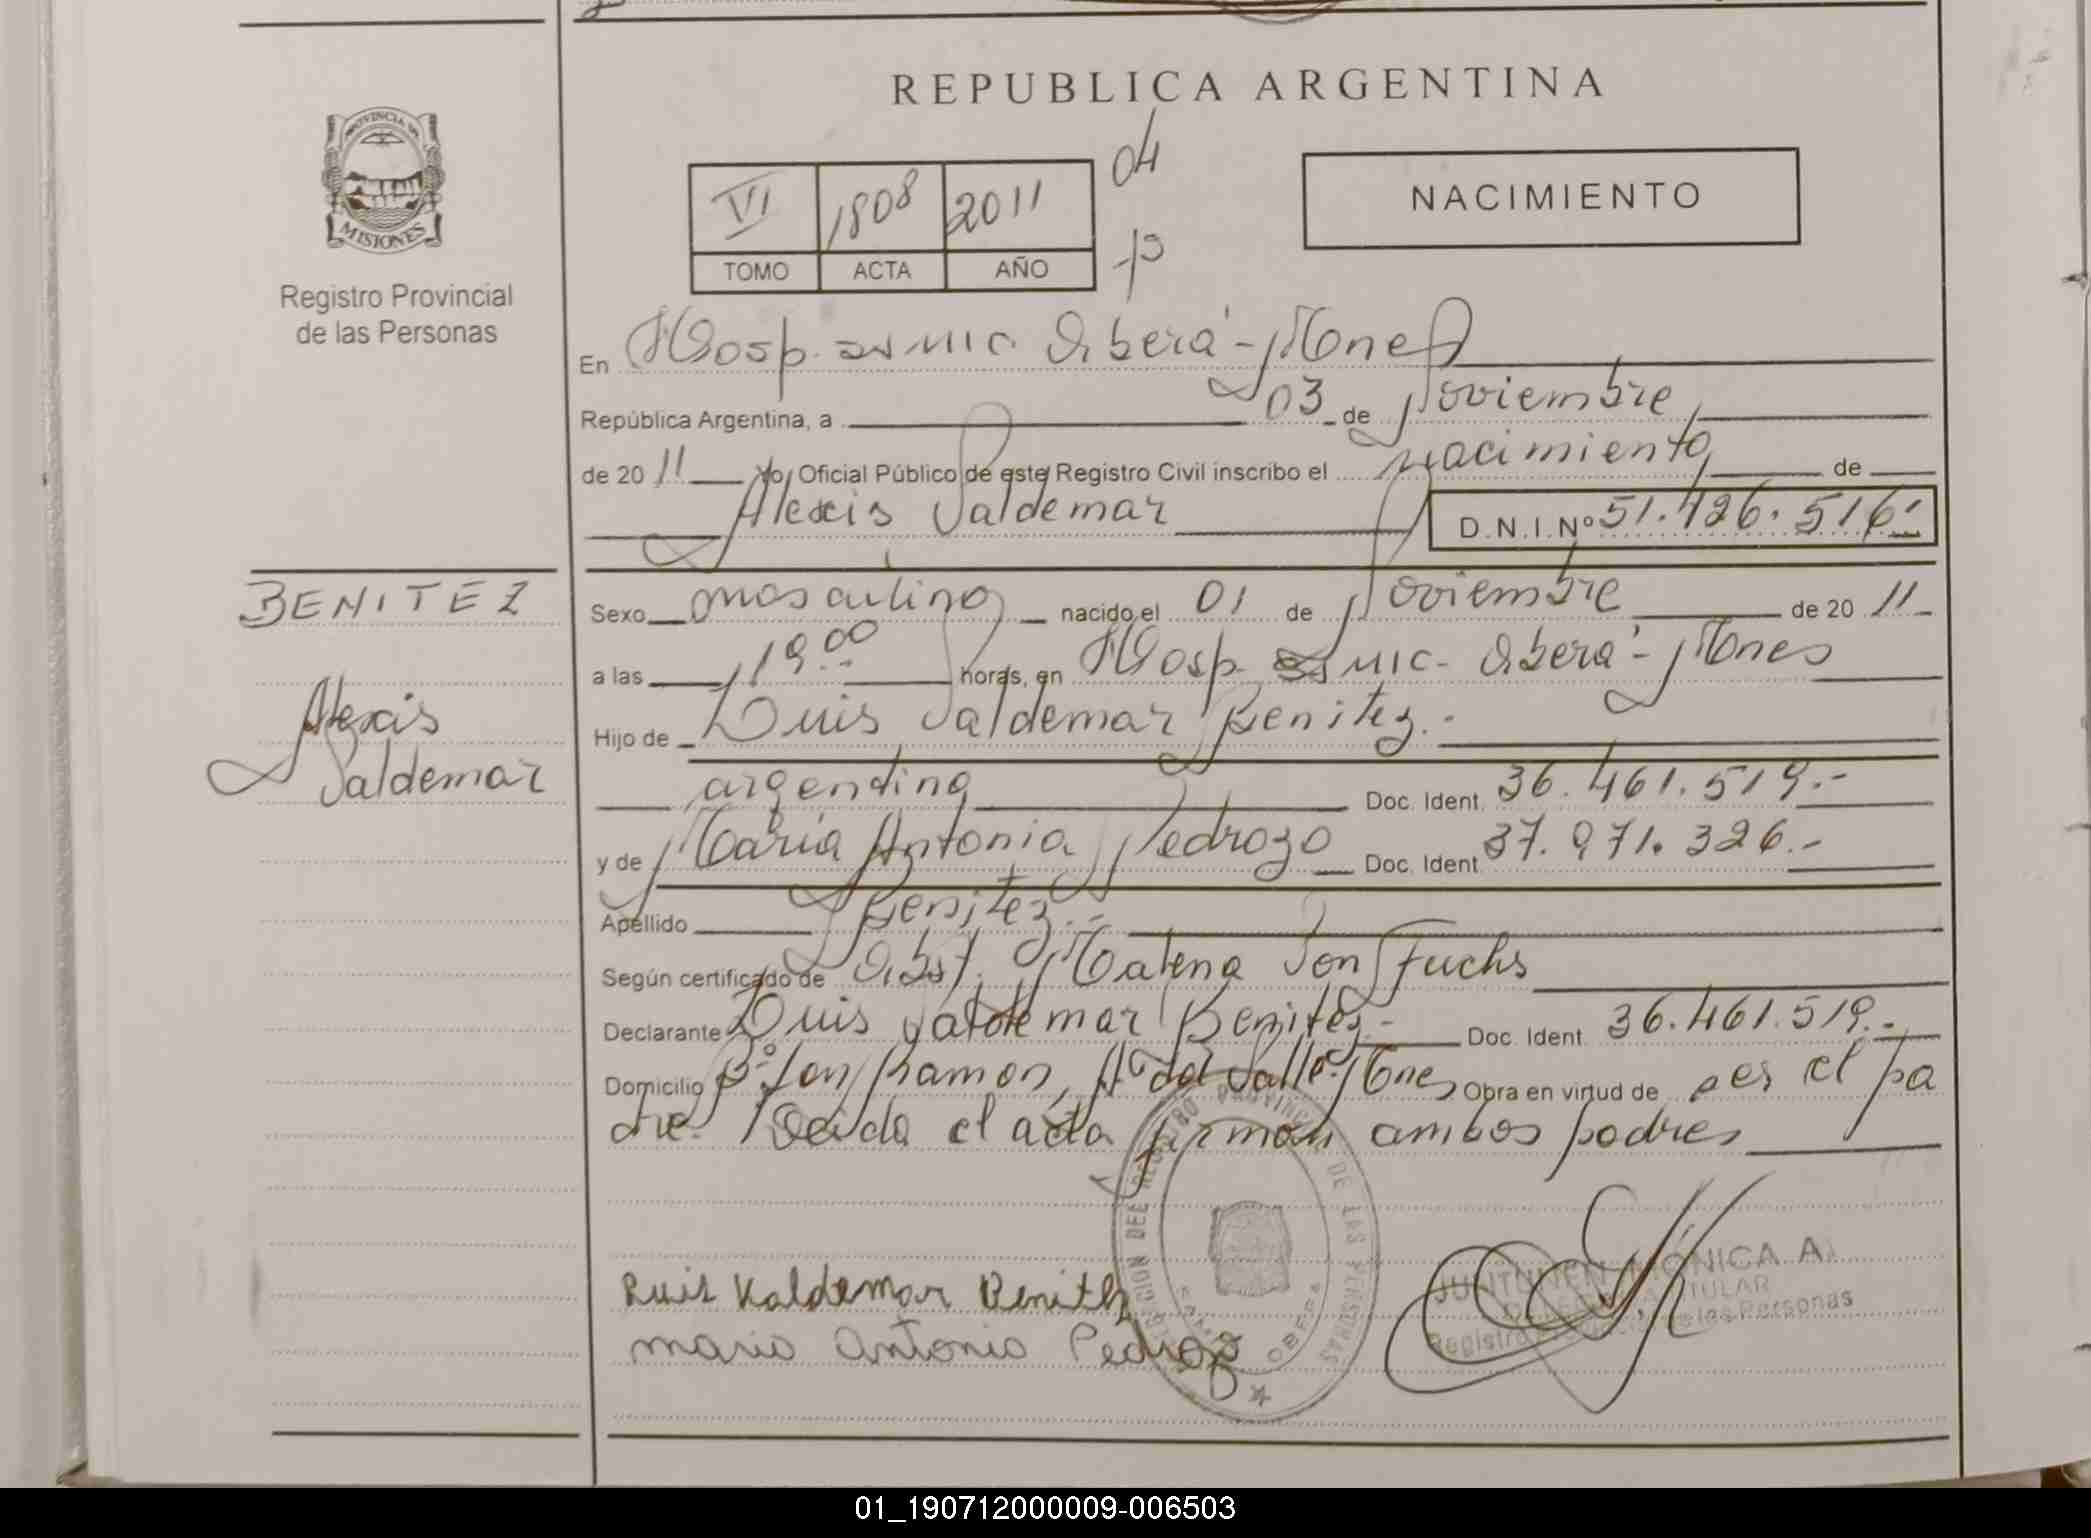 REPUBLICA ARGENTINA
PROVINCIA DE
MISIONES
Registro Provincial
de las Personas
VI 1808 2011
TOMO ACTA AÑO
04
NACIMIENTO
En Hosp. SAMIC. Oberá - Mnes
República Argentina, a 03 de Noviembre
de 2011 Yo, Oficial Público de este Registro Civil inscribo el nacimiento de
Alexis Valdemar D.N.I.Nº 51.426.516.-
BENITEZ
Alexis
Valdemar
Sexo masculino nacido el 01 de Noviembre de 2011
a las 19.00 horas, en Hosp. SAMIC - Oberá - Mnes
Hijo de Luis Valdemar Benitez.-
argentino Doc. Ident. 36.461.519.-
y de María Antonia Pedrozo Doc. Ident. 37.971.326.-
Apellido Benitez.-
Según certificado de Obst. Malena Von Fuchs
Declarante Luis Valdemar Benitez.- Doc. Ident. 36.461.519.-
Domicilio Bº Ramon, Aº del Valle - Mnes Obra en virtud de ser el pa
dre. Leida el acta firman ambos padres
Luis Valdemar Benitez
maria Antonia Pedrozo
DEL REGISTRO PROVINCIAL DE LAS PERSONAS
OBERA
MONICA A.
TITULAR
Registro de las Personas
01_190712000009-006503